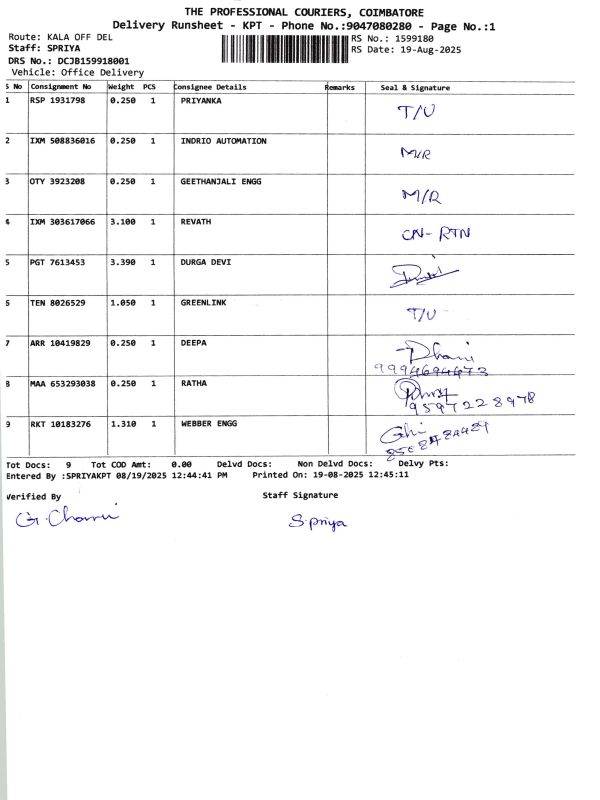 THE PROFESSIONAL COURIERS, COIMBATORE
Delivery Runsheet - KPT - Phone No.:9047080280 - Page No.:1
Route: KALA OFF DEL RS No.: 1599180
Staff: SPRIYA RS Date: 19-Aug-2025
DRS No.: DCJB159918001
Vehicle: Office Delivery
S No Consignment No Weight PCS Consignee Details Remarks Seal & Signature
1 RSP 1931798 0.250 1 PRIYANKA T/U
2 IXM 508836016 0.250 1 INDRIO AUTOMATION M/R
3 OTY 3923208 0.250 1 GEETHANJALI ENGG M/R
4 IXM 303617066 3.100 1 REVATH CN- RTN
5 PGT 7613453 3.390 1 DURGA DEVI
6 TEN 8026529 1.050 1 GREENLINK T/U
7 ARR 10419829 0.250 1 DEEPA Dhani
9994694673
8 MAA 653293038 0.250 1 RATHA
9597228978
9 RKT 10183276 1.310 1 WEBBER ENGG
Tot Docs: 9 Tot COD Amt: 0.00 Delvd Docs: Non Delvd Docs: Delvy Pts:
Entered By :SPRIYAKPT 08/19/2025 12:44:41 PM Printed On: 19-08-2025 12:45:11
Verified By Staff Signature
S.priya